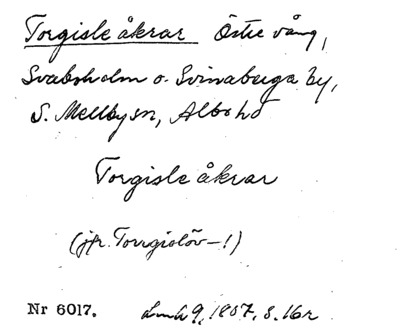 Torgisle åkrar Östre vång,
Svabsholm o. Svinaberga by,
S. Mellby sn, Albo hd
Torgisle åkrar
(jfr. Torrgislöv–!)
Nr 6017. 9, 1807, s. 16r